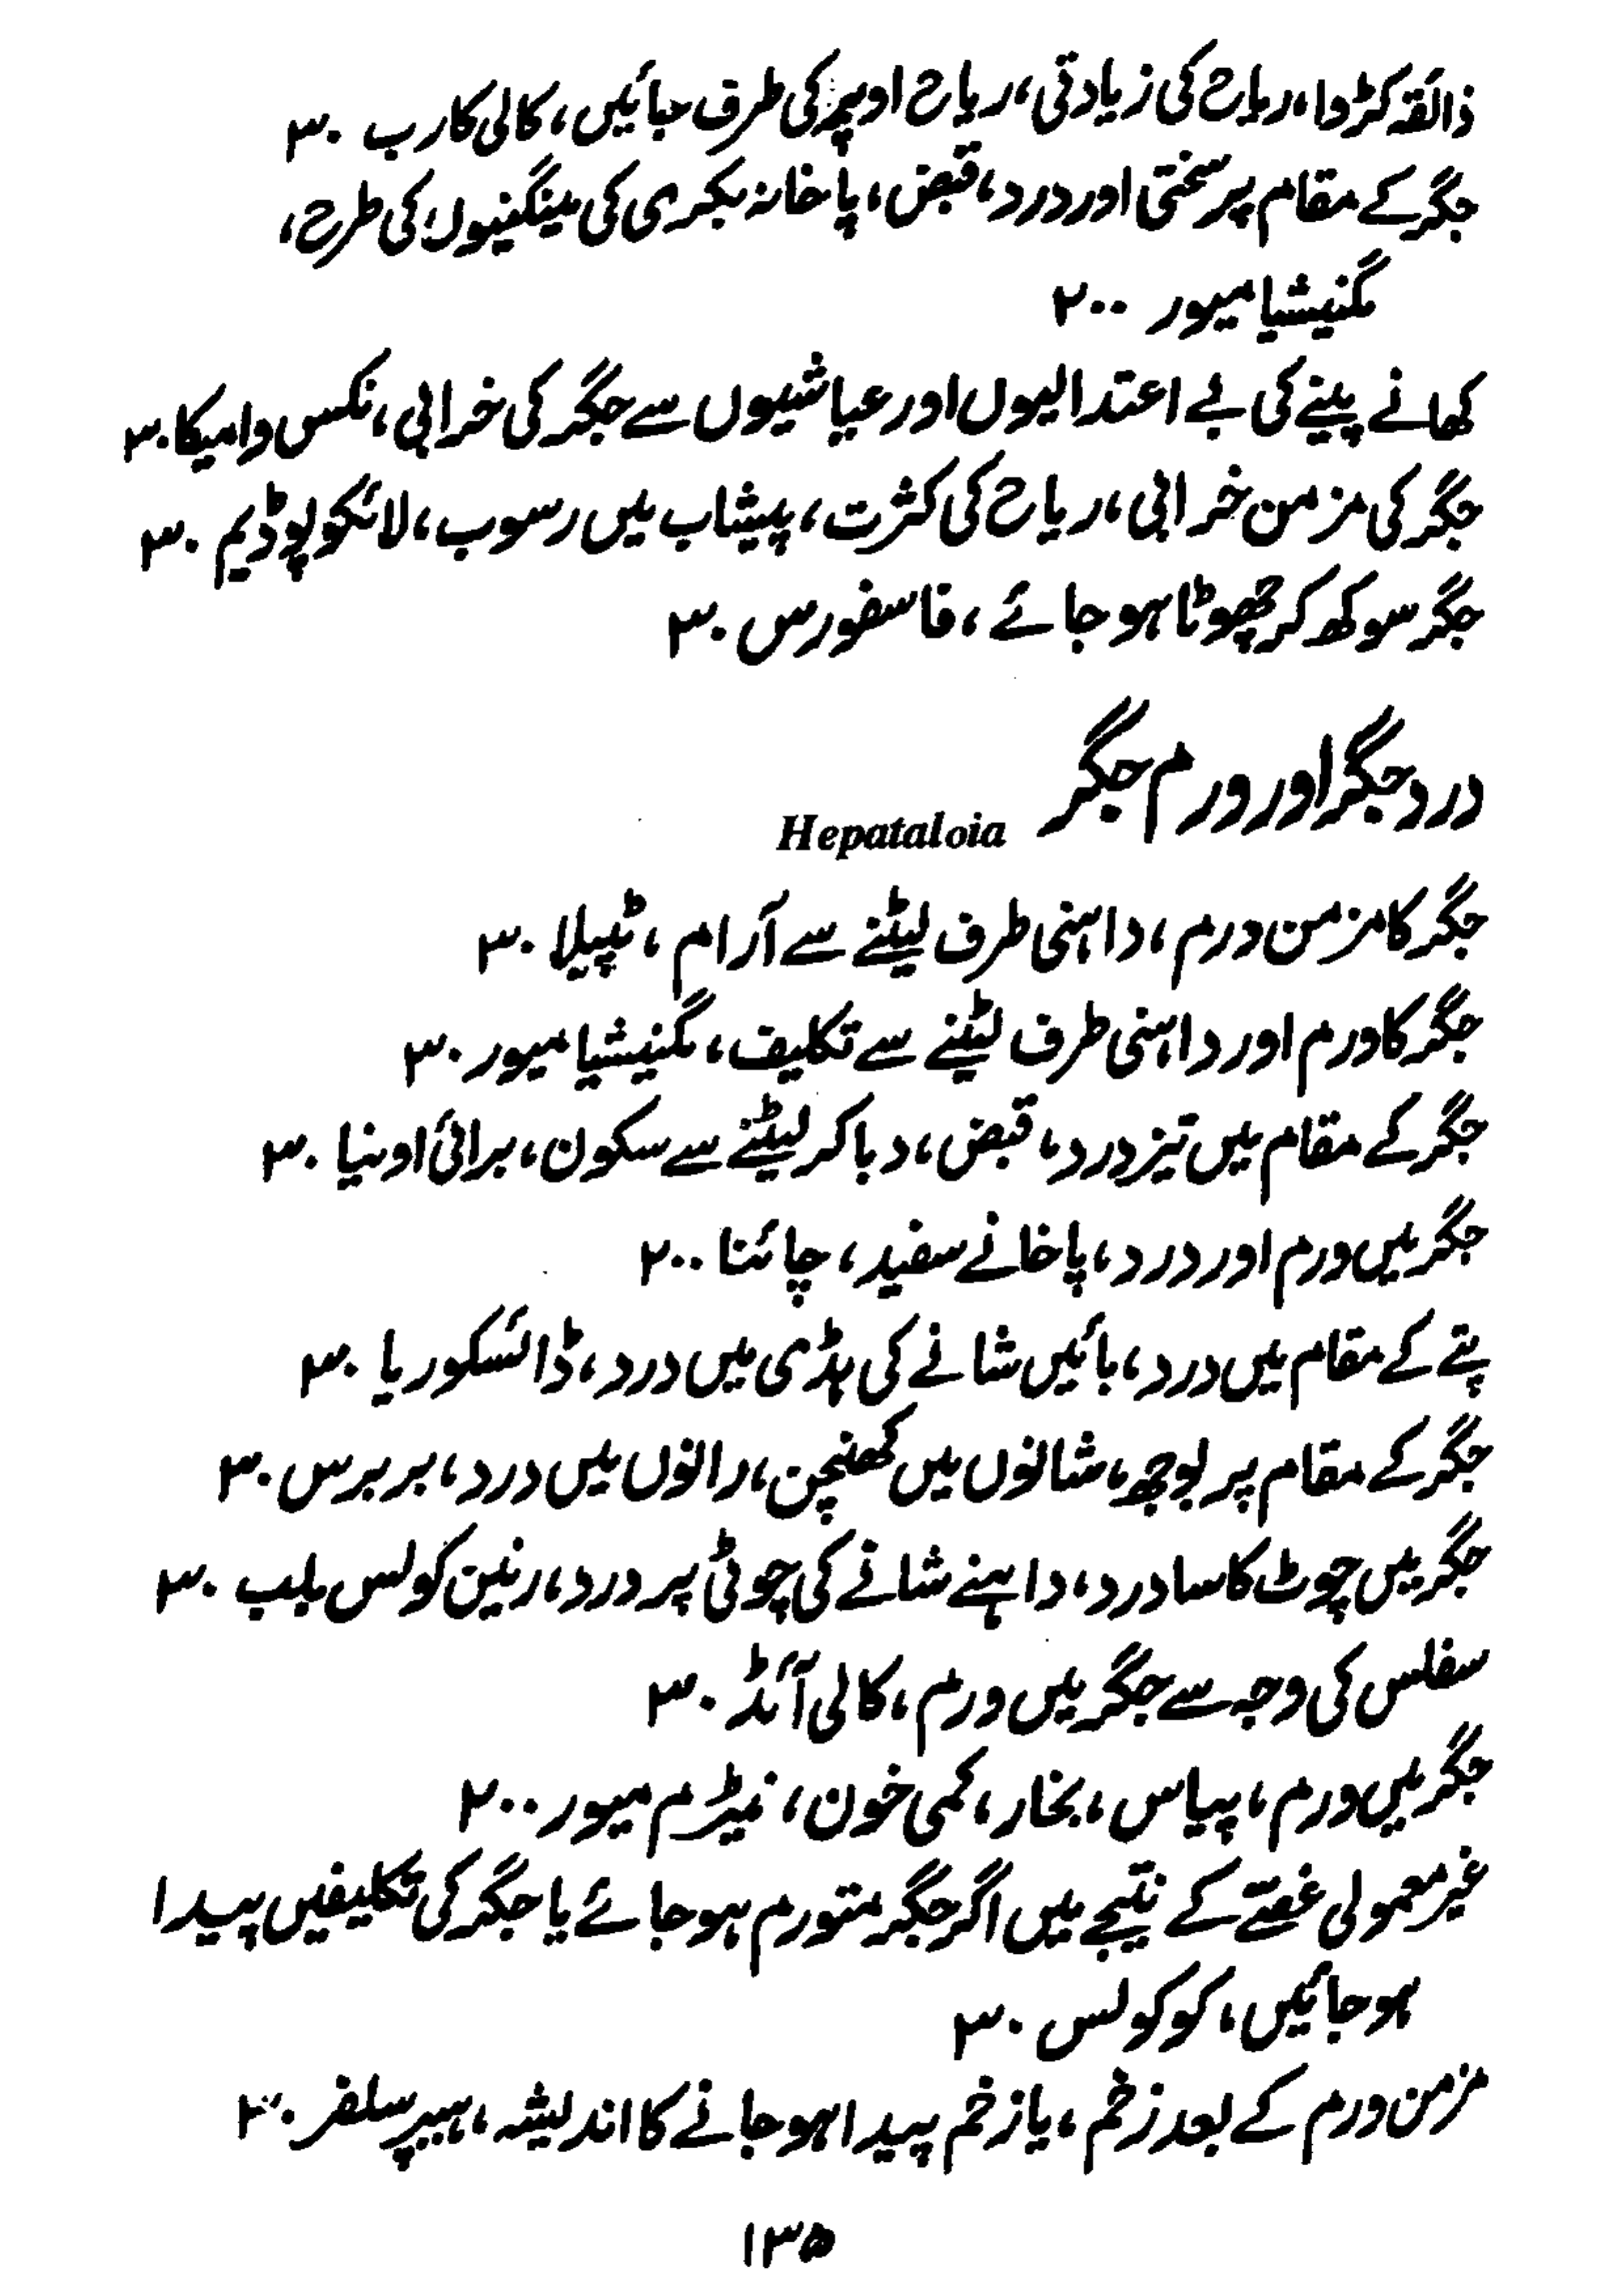 ذائقہ کڑوا، ریاح کی زیادتی، ریاح اوپر کی طرف جائیں، کالی کارب ۳۰
جگر کے مقام پر سختی اور درد، قبض، پاخانہ بکری کی مینگنیوں کی طرح،
مگنیشیا میور ۲۰۰
کھانے پینے کی بے اعتدالیوں اور عیاشیوں سے جگر کی خرابی، نکس وامیکا ۳۰
جگر کی مزمن خرابی، ریاح کی کثرت، پیشاب میں رسوب، لائکوپوڈیم ۳۰
جگر سوکھ کر چھوٹا ہو جائے، فاسفورس ۳۰
درد جگر اور ورم جگر Hepataloia
جگر کا مزمن ورم، داہنی طرف لیٹنے سے آرام، ٹیپلا ۳۰
جگر کا ورم اور داہنی طرف لیٹنے سے تکلیف، مگنیشیا میور ۳۰
جگر کے مقام میں تیز درد، قبض، دبا کر لیٹنے سے سکون، برائی اونیا ۳۰
جگر میں ورم اور درد، پاخانے سفید، چائنا ۲۰۰
پتے کے مقام میں درد، بائیں شانے کی ہڈی میں درد، ڈائسکوریا ۳۰
جگر کے مقام پر بوجھ، شانوں میں کھنچن، رانوں میں درد، بربرس ۳۰
جگر میں چوٹ کا سا درد، داہنے شانے کی چوٹی پر درد، رنین کولس بلب ۳۰
سفلس کی وجہ سے جگر میں ورم، کالی آئڈ ۳۰
جگر میں ورم، پیاس، بخار، کمی خون، نیٹرم میور ۲۰۰
غیر معمولی غصّے کے نتیجے میں اگر جگر متورم ہو جائے یا جگر کی تکلیفیں پیدا
ہو جائیں، کوکولس ۳۰
مزمن ورم کے بعد زخم، یا زخم پیدا ہو جانے کا اندیشہ، ہیپر سلفر ۳۰
۱۳۵